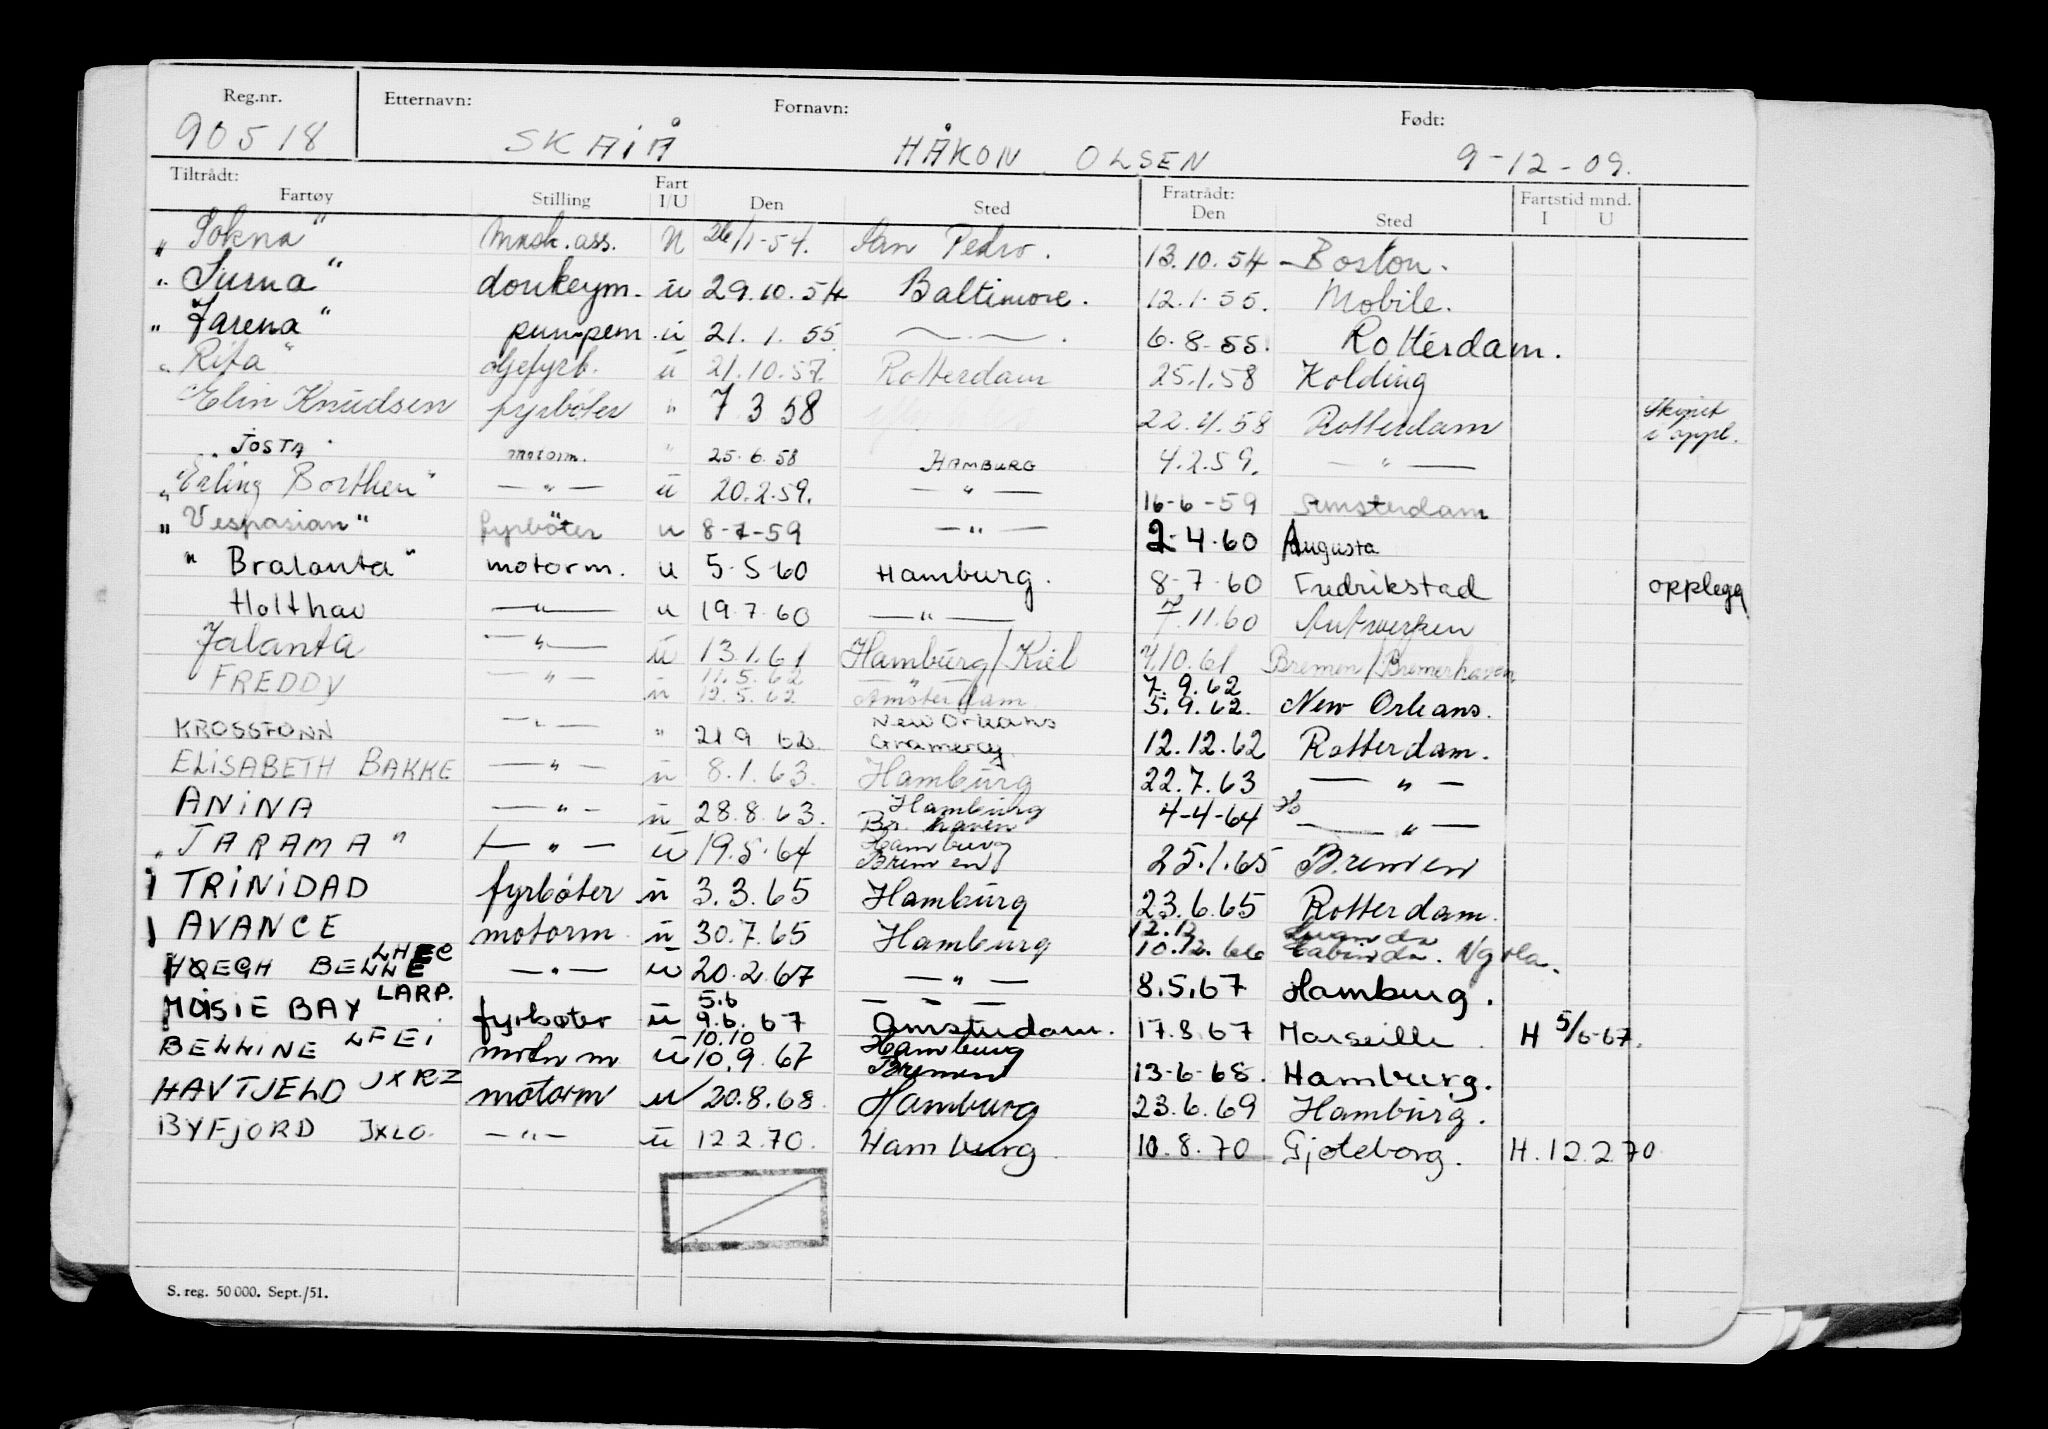 Reg.nr. Etternavn: Fornavn: Født:
90518 SKAIÅ HÅKON OLSEN 9-12-09.
Tiltrådt: Fratrådt: Fartstid mnd.
Fartøy Stilling Fart I/U Den Sted Den Sted I U
„ Sokna" mask.ass. u 26/1-54. San Pedro. 13.10.54 - Boston.
„ Surna" donkeym. u 29.10.54 Baltimore. 12.1.55. Mobile.
„ Jarena" pumpem. u 21.1.55 — 6.8.55. Rotterdam.
„ Rita" oljefyrb. u 21.10.57. Rotterdam 25.1.58 Kolding
Elin Knudsen fyrbøter " 7 3 58 22.4.58 Rotterdam Skipet i oppl.
JOSTA motorm. " 25.6.58 HAMBURG 4.2.59. — " —
„ Erling Borthen" — " — u 20.2.59. — " — 16-6-59 Amsterdam
„ Vespasian" fyrbøter u 8-7-59 — " — 2-4-60 Augusta
" Bralanta" motorm. u 5-5-60 Hamburg. 8-7-60 Fredrikstad opplegg
Holthav — " — u 19.7.60 — " — 7.11.60 Antwerpen
Jalanta — " — u 13.1.61 Hamburg/Kiel 7.10.61 Bremen/Bremerhaven
FREDDY — " — 11.5.62 — " — 7.9.62
u 12.5.62 Amsterdam 5.9.62. New Orleans.
KROSSFONN — " — " 21 9 62. New Orleans Gramercy 12.12.62 Rotterdam.
ELISABETH BAKKE — " — u 8.1.63. Hamburg 22.7.63 — " —
ANINA — " — u 28.8.63. Hamburg Br. haven 4-4-64 — " —
„ TARAMA " — " — u 19.5.64 Hamburg Bremen 25.1.65 Bremen
TRINIDAD fyrbøter u 3.3.65 Hamburg 23.6.65 Rotterdam.
AVANCE motorm u 30.7.65 Hamburg 12.12 Luanda
10.12.66 Cabinda.
HØEGH BELLE LHEC — " — u 20.2.67 — " — 8.5.67 Hamburg.
MOSIE BAY LARP. fyrbøter u 5.6 9.6.67 Amsterdam. 17.8.67 Marseille. H 5/6-67.
BELLINE LFEI motorm u 10.10 10.9.67 Hamburg Bremen 13-6-68. Hamburg.
HAVTJELD JXRZ motorm u 20.8.68. Hamburg 23.6.69 Hamburg.
BYFJORD JXLO. — " — u 12 2.70. Hamburg. 10.8.70 Gjøteborg. H. 12.2 70
S. reg. 50 000. Sept./51.